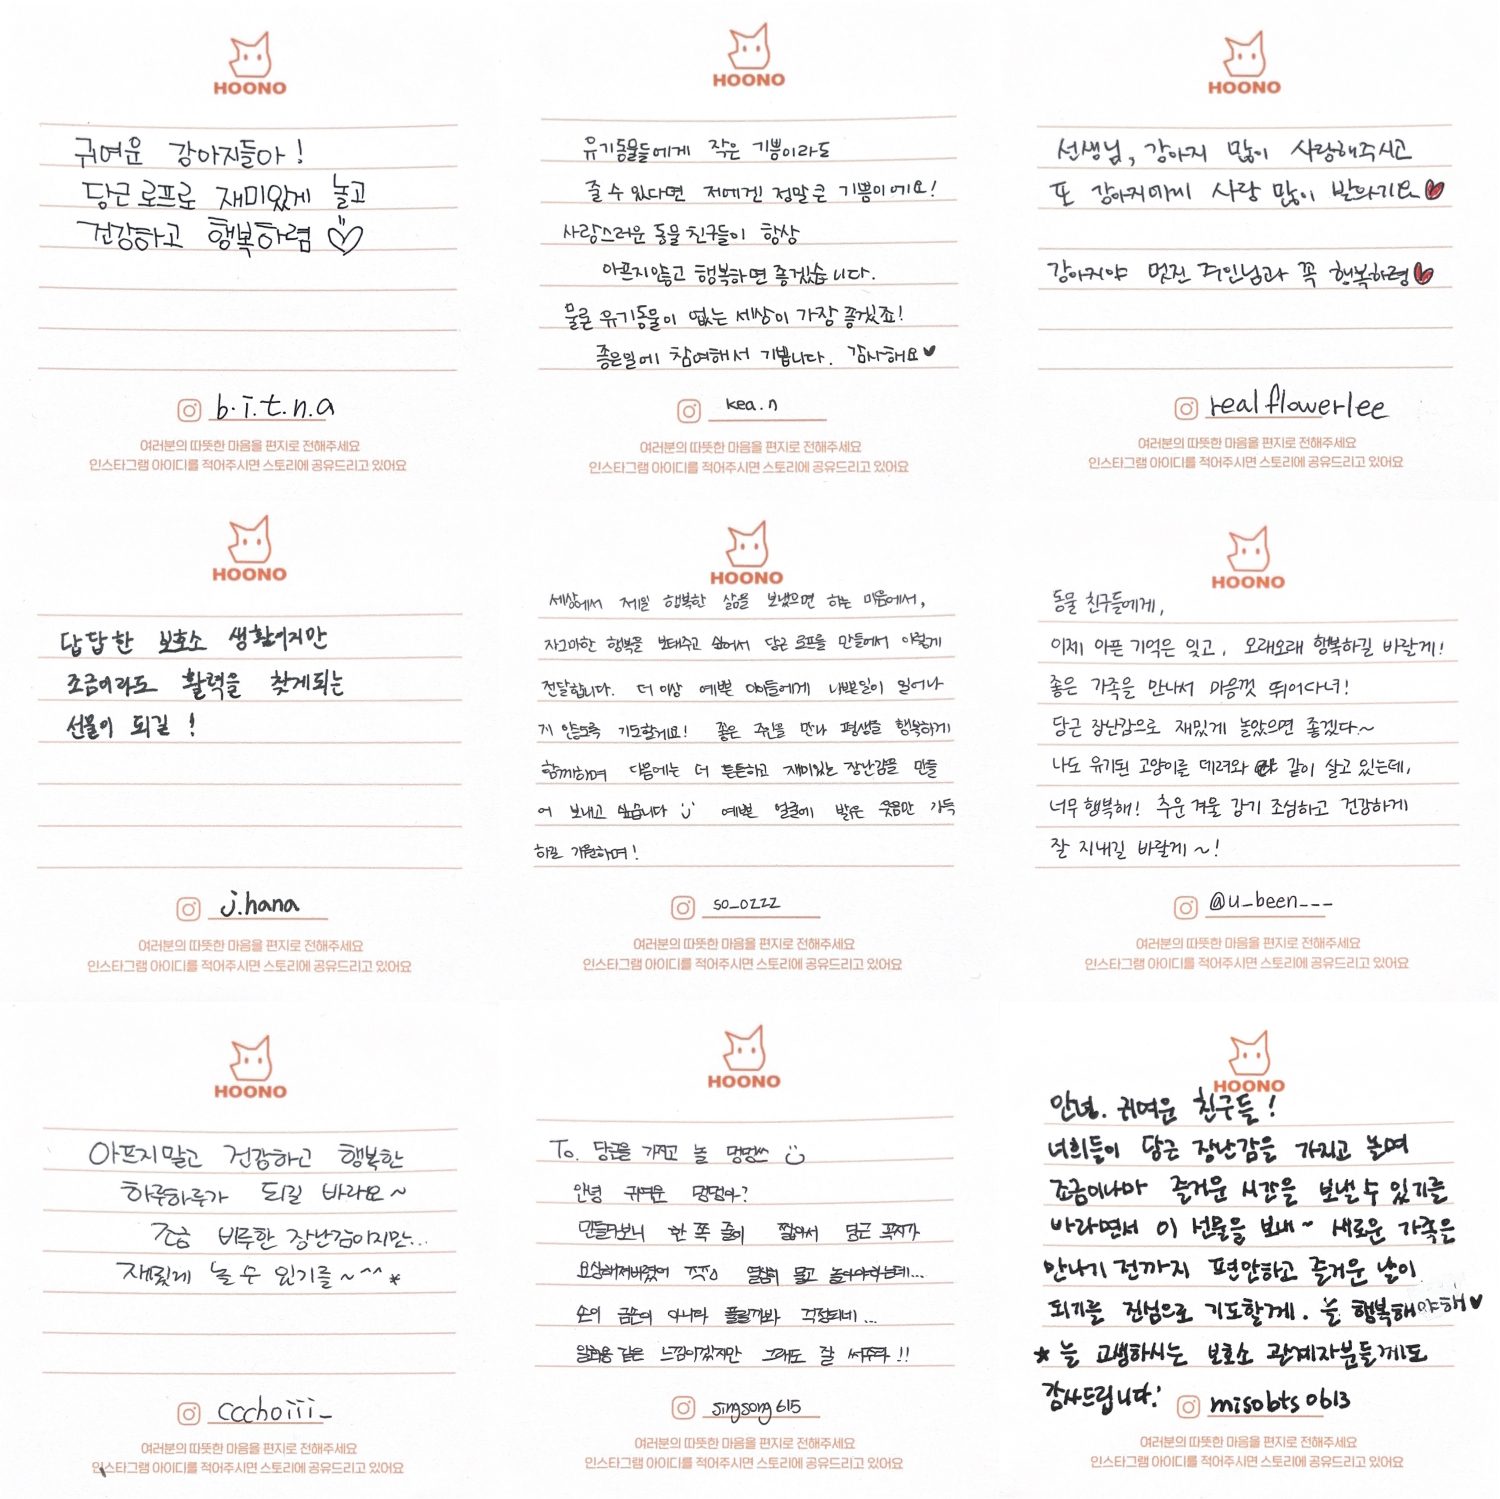 HOONO
귀여운 강아지들아!
당근로프로 재미있게 놀고
건강하고 행복하렴
b.i.t.n.a
여러분의 따뜻한 마음을 편지로 전해주세요
인스타그램 아이디를 적어주시면 스토리에 공유드리고 있어요
HOONO
유기동물들에게 작은 기쁨이라도
줄 수 있다면 저에겐 정말 큰 기쁨이에요!
사랑스러운 동물 친구들이 항상
아프지않고 행복하면 좋겠습니다.
물론 유기동물이 없는 세상이 가장 좋겠죠!
좋은일에 참여해서 기쁩니다. 감사해요♥
kea.n
여러분의 따뜻한 마음을 편지로 전해주세요
인스타그램 아이디를 적어주시면 스토리에 공유드리고 있어요
HOONO
선생님, 강아지 많이 사랑해주시고
또 강아지에게 사랑 많이 받으시기요♥
강아지야 멋진 주인님과 꼭 행복하렴♥
realflowerlee
여러분의 따뜻한 마음을 편지로 전해주세요
인스타그램 아이디를 적어주시면 스토리에 공유드리고 있어요
HOONO
답답한 보호소 생활이지만
조금이라도 활력을 찾게되는
선물이 되길!
j.hana
여러분의 따뜻한 마음을 편지로 전해주세요
인스타그램 아이디를 적어주시면 스토리에 공유드리고 있어요
HOONO
세상에서 제일 행복한 삶을 보냈으면 하는 마음에서,
자그마한 행복을 보태주고 싶어서 당근 로프를 만들어서 이렇게
전달합니다. 더 이상 예쁜 아이들에게 나쁜일이 일어나
지 않도록 기도할게요! 좋은 주인을 만나 평생을 행복하게
함께하며 다음에는 더 튼튼하고 재미있는 장난감을 만들
어 보내고 싶습니다 예쁜 얼굴에 밝은 웃음만 가득
하길 기원하며!
so_ozzz
여러분의 따뜻한 마음을 편지로 전해주세요
인스타그램 아이디를 적어주시면 스토리에 공유드리고 있어요
HOONO
동물 친구들에게,
이제 아픈 기억은 잊고, 오래오래 행복하길 바랄게!
좋은 가족을 만나서 마음껏 뛰어다녀!
당근 장난감으로 재밌게 놀았으면 좋겠다~
나도 유기된 고양이를 데려와 같이 살고 있는데,
너무 행복해! 추운 겨울 감기 조심하고 건강하게
잘 지내길 바랄게~!
@u_been___
여러분의 따뜻한 마음을 편지로 전해주세요
인스타그램 아이디를 적어주시면 스토리에 공유드리고 있어요
HOONO
아프지말고 건강하고 행복한
하루하루가 되길 바라요~
조금 비루한 장난감이지만...
재밌게 놀 수 있기를~^^*
ccchoiii_
여러분의 따뜻한 마음을 편지로 전해주세요
인스타그램 아이디를 적어주시면 스토리에 공유드리고 있어요
HOONO
To. 당근을 가지고 놀 멍멍쓰
안녕 귀여운 멍멍아?
만들다보니 한 쪽 줄이 짧아서 당근 꼭지가
요상해져버렸어 열심히 물고 놀아야하는데...
손이 금손이 아니라 풀릴까봐 걱정되네...
일회용 같은 느낌이겠지만 그래도 잘 써주라!!
singsong615
여러분의 따뜻한 마음을 편지로 전해주세요
인스타그램 아이디를 적어주시면 스토리에 공유드리고 있어요
HOONO
안녕. 귀여운 친구들!
너희들이 당근 장난감을 가지고 놀며
조금이나마 즐거운 시간을 보낼 수 있기를
바라면서 이 선물을 보내~ 새로운 가족을
만나기 전까지 편안하고 즐거운 날이
되기를 진심으로 기도할게. 늘 행복해야해♥
* 늘 고생하시는 보호소 관계자분들께도
감사드립니다!
misobts0613
여러분의 따뜻한 마음을 편지로 전해주세요
인스타그램 아이디를 적어주시면 스토리에 공유드리고 있어요